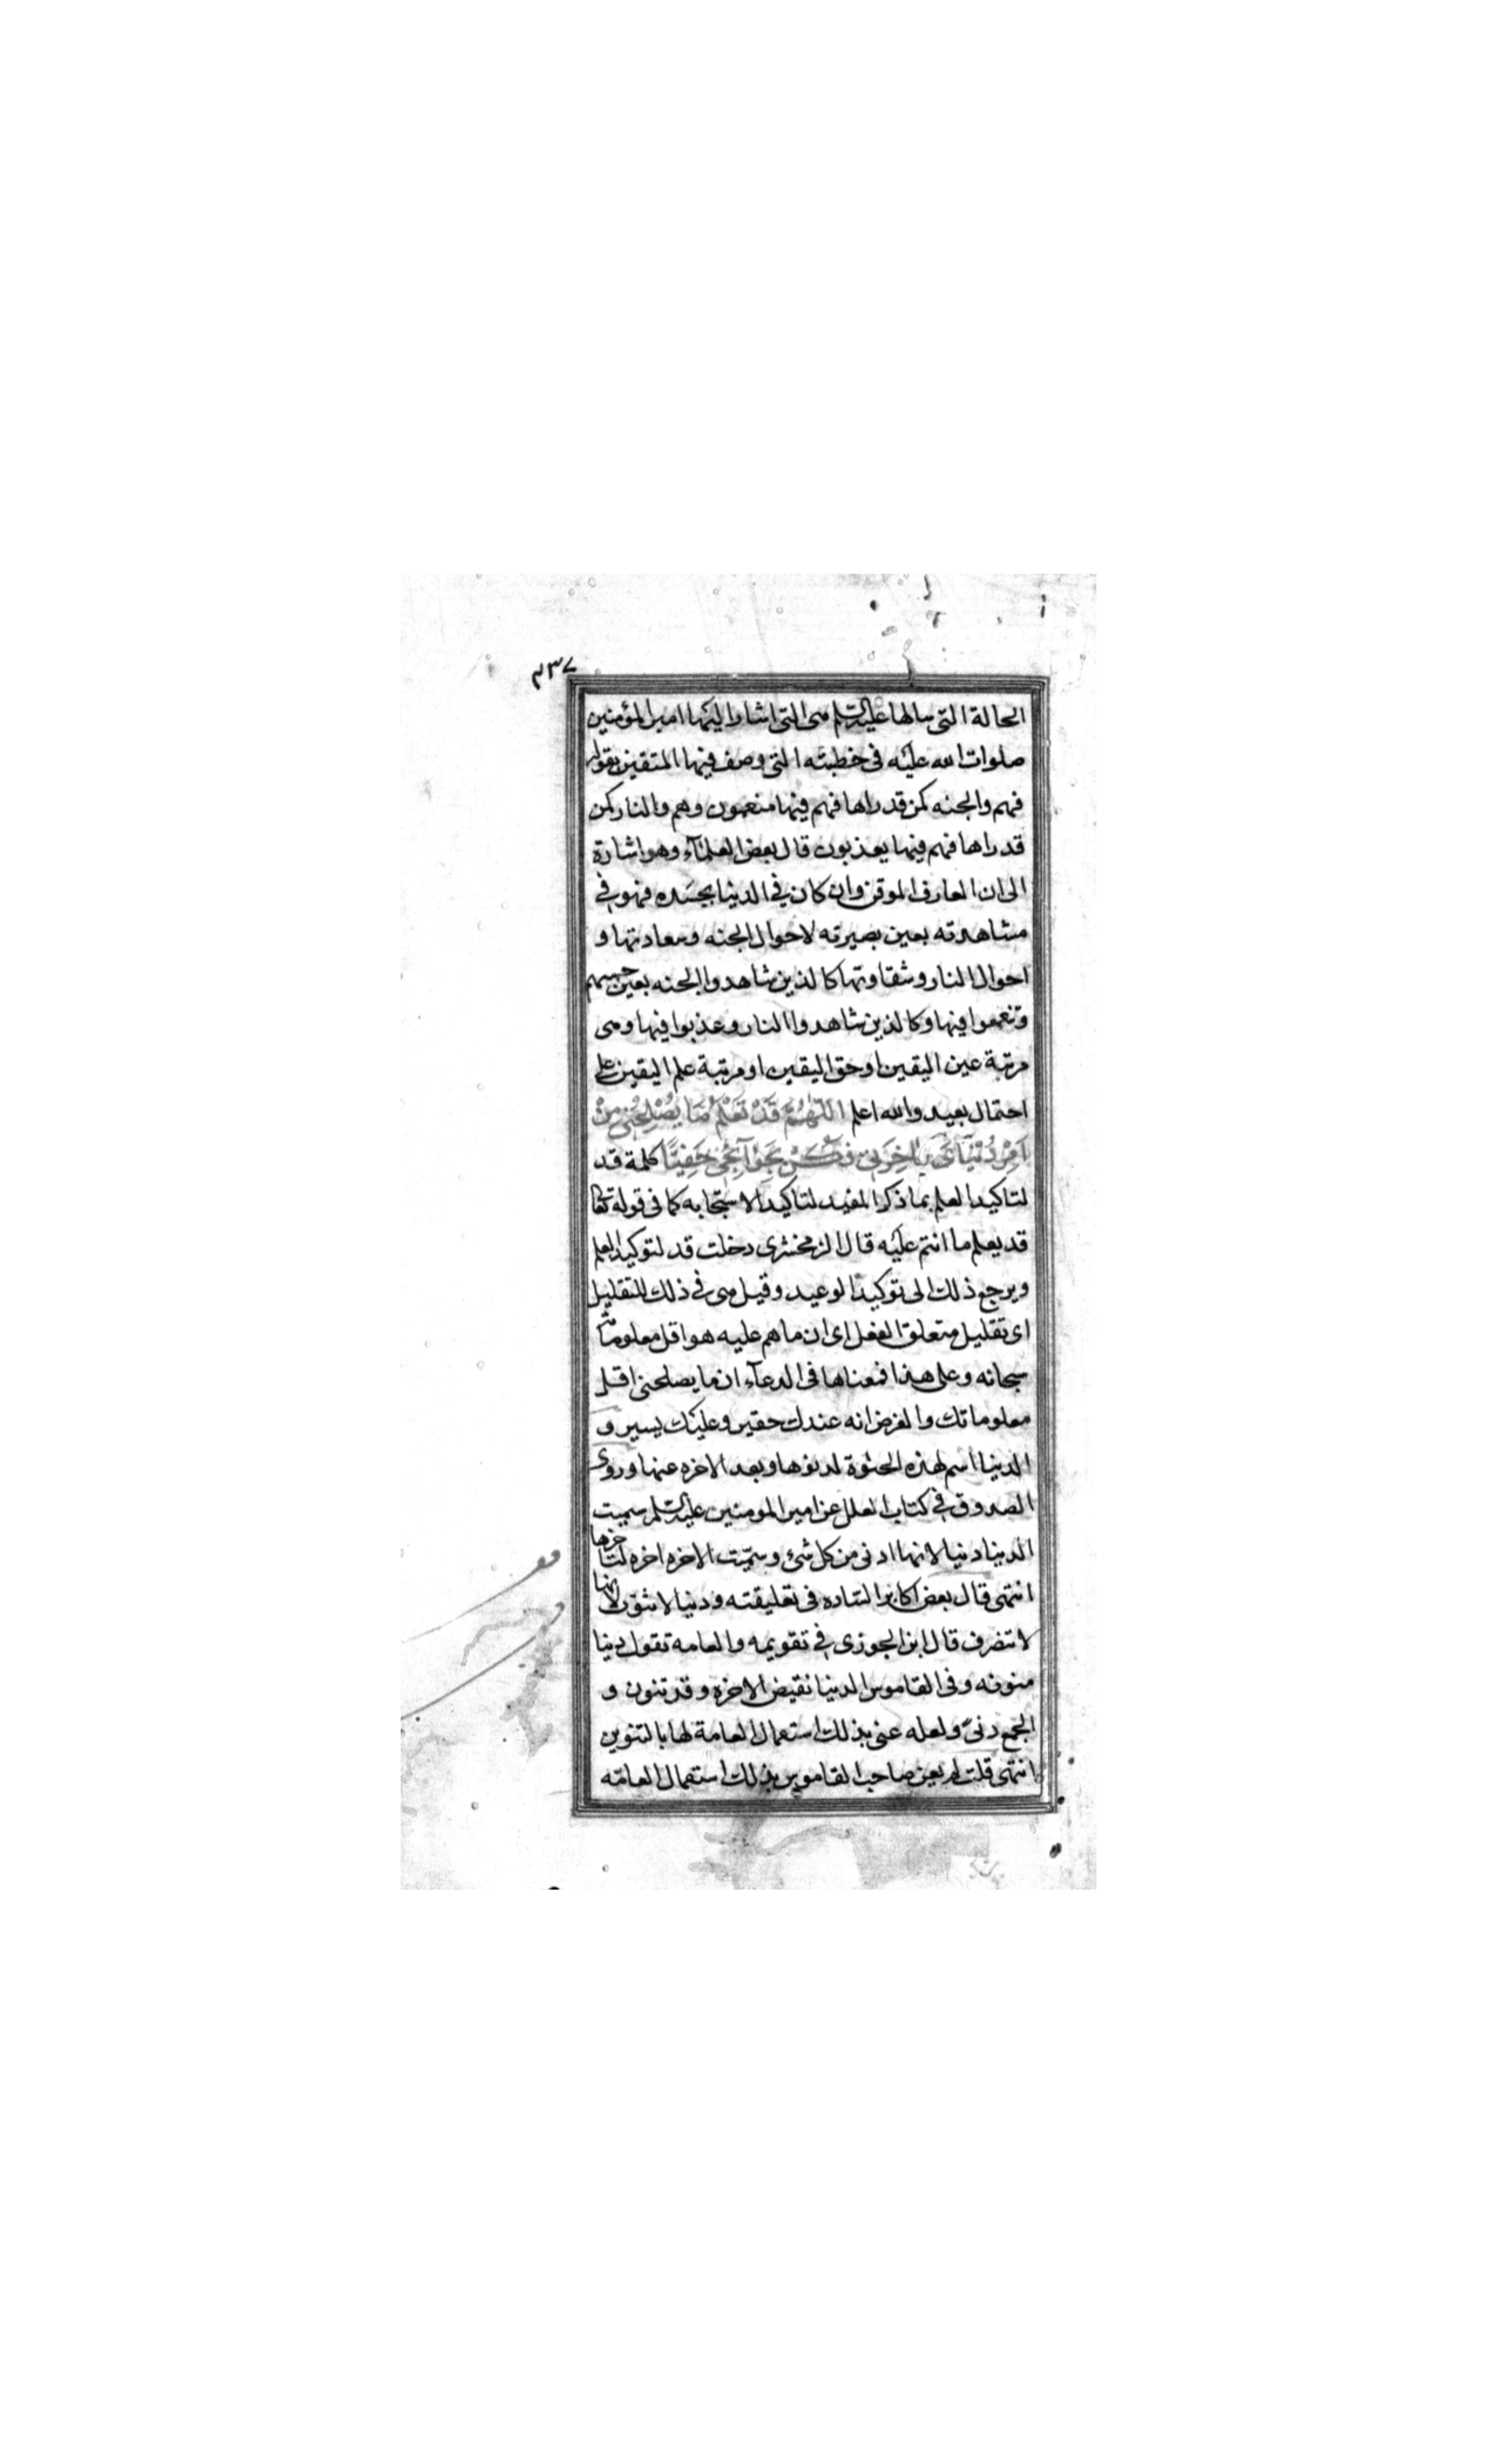 ٢٣٧
الحالة التى سالها عليه السلم هى التى اشار اليها امير المؤمنين
صلوات الله عليه فى خطبته التى وصف فيها المتقين بقوله
فهم والجنه كمن قد راها فهم فيها منعمون وهم والنار كمن
قد راها فهم فيها يعذبون قال بعض العلمآء وهو اشارة
الى ان العارف الموقن وان كان فى الدنيا بجسده فهو فى
مشاهدته بعين بصيرته لاحوال الجنه وسعادتها و
احوال النار وشقاوتها كالذين شاهدوا الجنه بعين حسهم
وتنعموا فيها وكالذين شاهدوا النار وعذبوا فيها وهى
مرتبة عين اليقين او حق اليقين او مرتبة علم اليقين على
احتمال بعيد والله اعلم اللّٰهُمَّ قَدْ تَعْلَمُ مَا يُصْلِحُنِي مِنْ
اَمْرِ دُنْيَاىَ وَاٰخِرَتِى فَكُنْ بِحَوَآئِجِى حَفِيّاً كلمة قد
لتاكيد العلم بما ذكر المفيد لتاكيد الاستجابه كما فى قوله تعا
قد يعلم ما انتم عليه قال الزمخشرى دخلت قد لتوكيد العلم
ويرجع ذلك الى توكيد الوعيد وقيل هى فى ذلك للتقليل
اى تقليل متعلق الفعل اى ان ما هم عليه هو اقل معلوماته
سبحانه وعلى هذا فمعناها فى الدعآء ان ما يصلحنى اقل
معلوماتك والغرض انه عندك حقير وعليك يسير و
الدنيا اسم لهذه الحيوة لدنوها وبعد الاخره عنها وروى
الصدوق فى كتاب العلل عن امير المومنين عليه السلم سميت
الدنيا دنيا لانها ادنى من كل شئ وسمّيت الاخره اخره لتاخرها
انتهى قال بعض اكابر السّاده فى تعليقته ودنيا لا تنوّن لانها
لا تنصرف قال ابن الجوزى فى تقويمه والعامه تقول دنيا
منونه وفى القاموس الدنيا نقيض الاخره وقد تنون و
الجمع دنىّ ولعله عنى بذلك استعمال العامة لها بالتنوين
انتهى قلت لم يعن صاحب القاموس بذلك استعمال العامّه